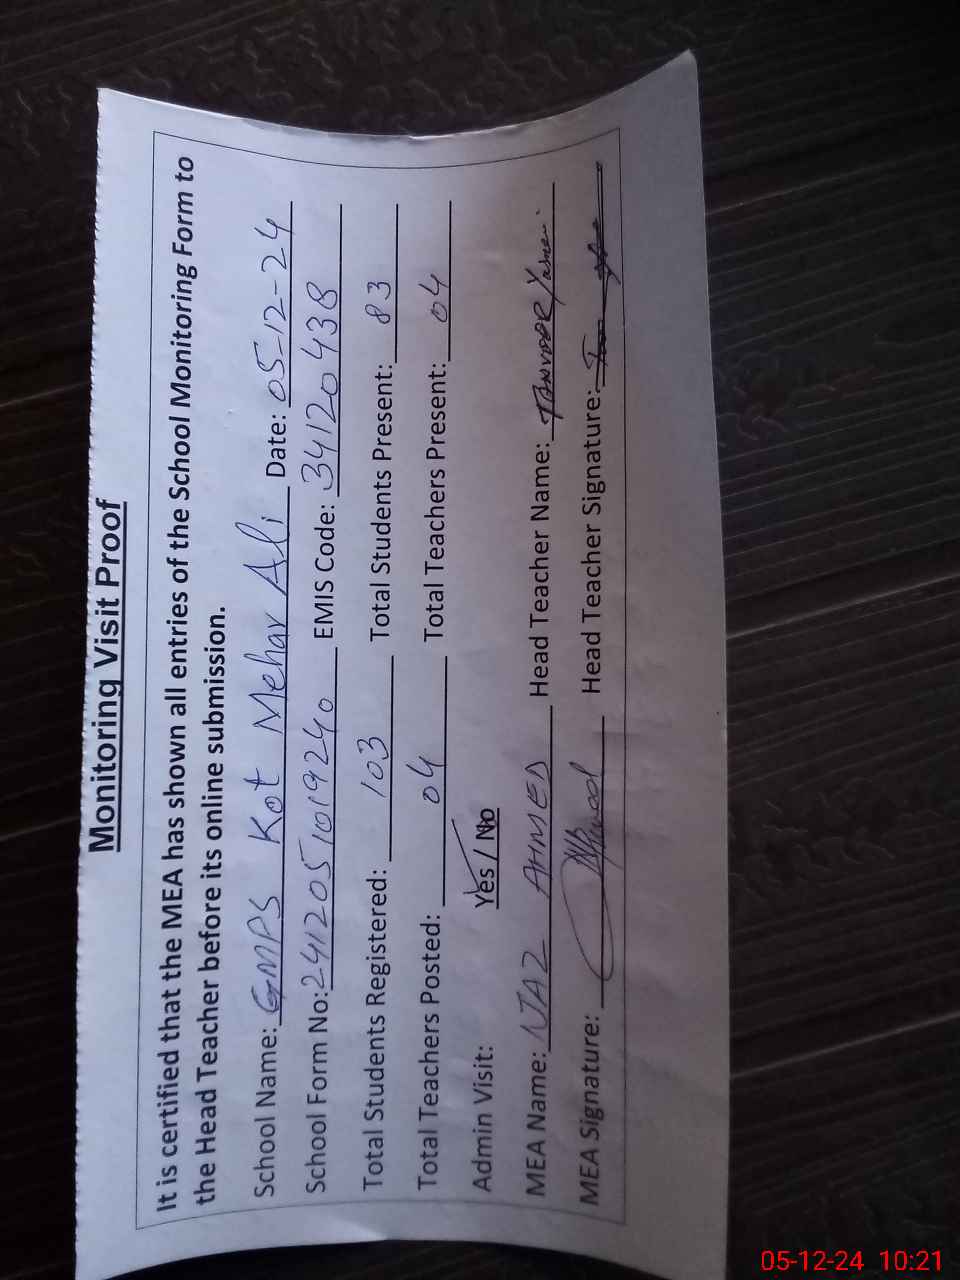 Monitoring Visit Proof
It is certified that the MEA has shown all entries of the School Monitoring Form to
the Head Teacher before its online submission.
School Name: GMPS Kot Mehar Ali Date: 05-12-24
School Form No: 241205101924o EMIS Code: 34120438
Total Students Registered: 103 Total Students Present: 83
Total Teachers Posted: 04 Total Teachers Present: 04
Admin Visit: Yes / No
MEA Name: NIAZ AHMED Head Teacher Name: TANVEER
MEA Signature: Head Teacher Signature:
05-12-24 10:21